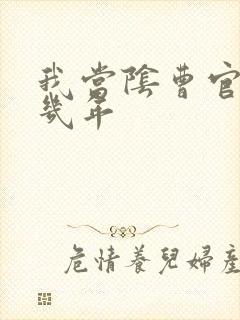 我當陰曹官
幾年
危情養兒婦產